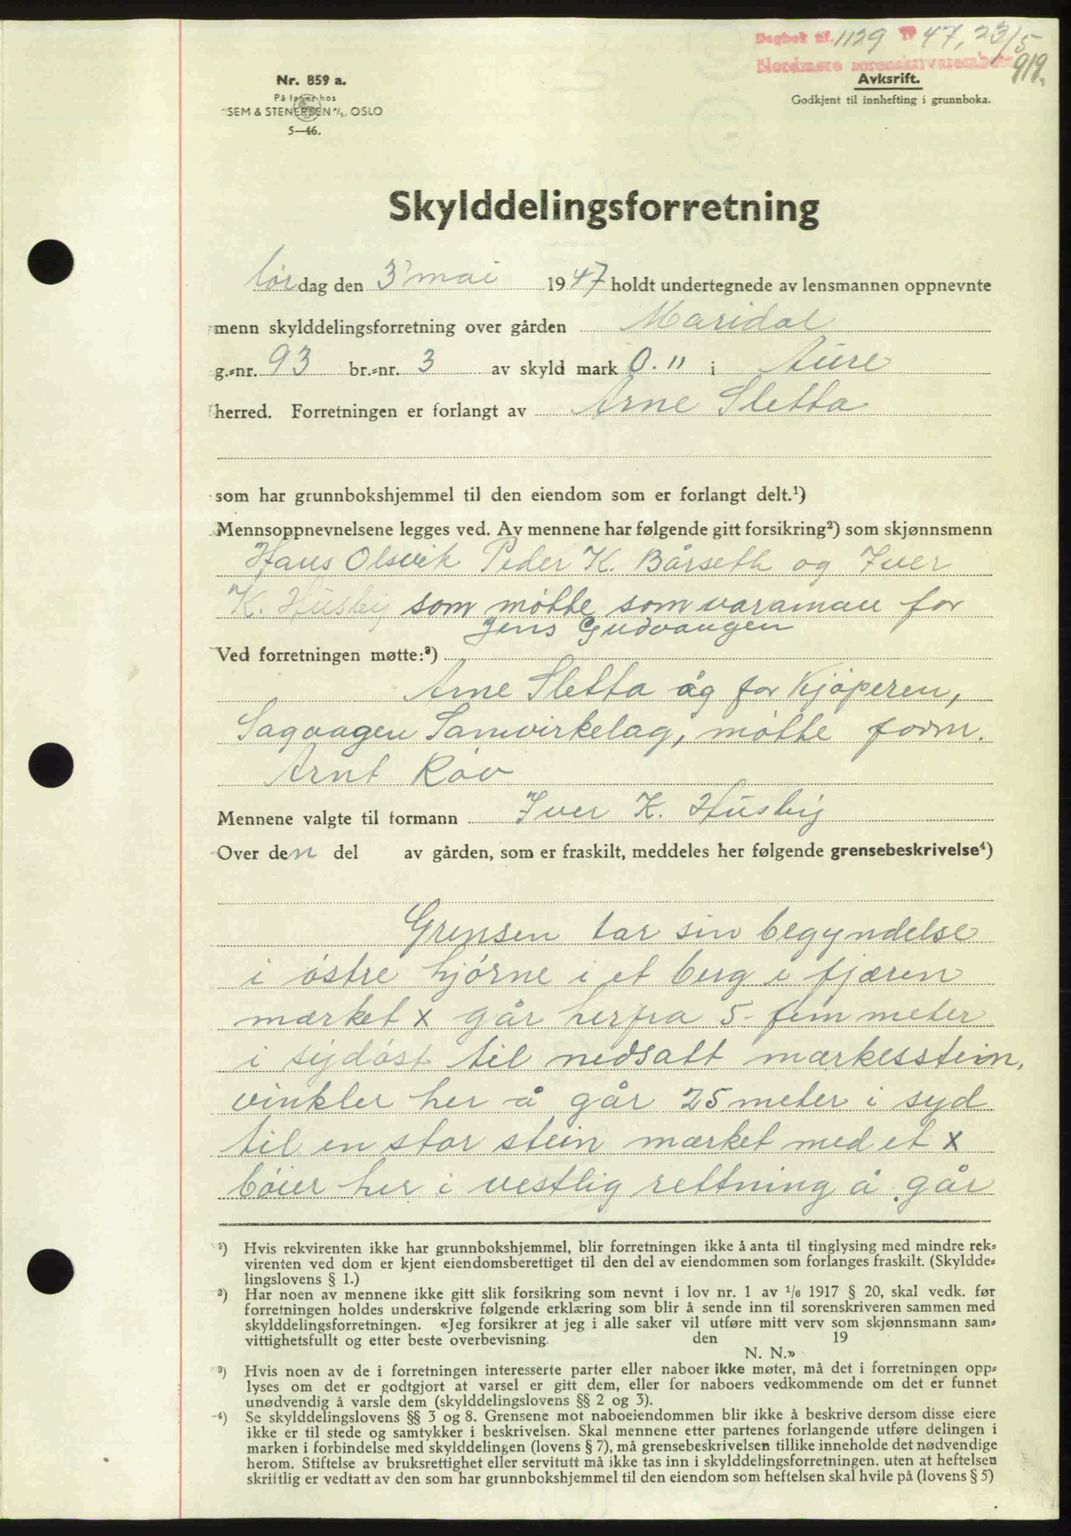 Dagbok nr. 1129 19 47, 23/5
Nordmøre sorenskriverembete
919.
Nr. 859 a.
På lager hos
SEM & STENERSEN A/S. OSLO
5—46.
Avskrift.
Godkjent til innhefting i grunnboka.
Skylddelingsforretning
Lørdag den 3' mai 1947 holdt undertegnede av lensmannen oppnevnte
menn skylddelingsforretning over gården Maridal
g.-nr. 93 br.-nr. 3 av skyld mark 0. 11 i Aure
herred. Forretningen er forlangt av Arne Sletta
som har grunnbokshjemmel til den eiendom som er forlangt delt.¹)
Mennsoppnevnelsene legges ved. Av mennene har følgende gitt forsikring²) som skjønnsmenn
Hans Olsvik Peder K. Bårseth og Iver
K. Husby som møtte som varaman for
Jens Gudvangen
Ved forretningen møtte:³)
Arne Sletta åg for Kjøperen,
Sagvågen Samvirkelag, møtte form.
Arnt Røv
Mennene valgte til formann Iver K. Husby
Over den del av gården, som er fraskilt, meddeles her følgende grensebeskrivelse⁴)
Grensen tar sin begyndelse
i østre hjørne i et berg i fjæren
mærket x går herfra 5- fem meter
i sydøst til nedsatt mærkesstein,
vinkler her å går 25 meter i syd
til en stor stein mærket med et x
bøier her i vestlig rettning å går
¹) Hvis rekvirenten ikke har grunnbokshjemmel, blir forretningen ikke å anta til tinglysing med mindre rek-
virenten ved dom er kjent eiendomsberettiget til den del av eiendommen som forlanges fraskilt. (Skyldde-
lingslovens § 1.)
²) Har noen av mennene ikke gitt slik forsikring som nevnt i lov nr. 1 av 1/6 1917 § 20, skal vedk. før
forretningen holdes underskrive følgende erklæring som blir å sende inn til sorenskriveren sammen med
skylddelingsforretningen. «Jeg forsikrer at jeg i alle saker vil utføre mitt verv som skjønnsmann sam-
vittighetsfullt og etter beste overbevisning. den 19
N. N.»
³) Hvis noen av de i forretningen interesserte parter eller naboer ikke møter, må det i forretningen opp-
lyses om det er godtgjort at varsel er gitt dem, eller for naboers vedkommende om det er funnet
unødvendig å varsle dem (skylddelingslovens §§ 2 og 3).
⁴) Se skylddelingslovens §§ 3 og 8. Grensene mot naboeiendommen blir ikke å beskrive dersom disse eiere
ikke er til stede og samtykker i beskrivelsen. Skal mennene etter partenes forlangende utføre delingen i
marken i forbindelse med skylddelingen (lovens § 7), må grensebeskrivelsen tillike inneholde det nødvendige
herom. Stiftelse av bruksrettighet eller servitutt må ikke tas inn i skylddelingsforretningen. uten at heftelsen
skriftlig er vedtatt av den som har grunnbokshjemmel til den eiendom som heftelsen skal hvile på (lovens § 5)